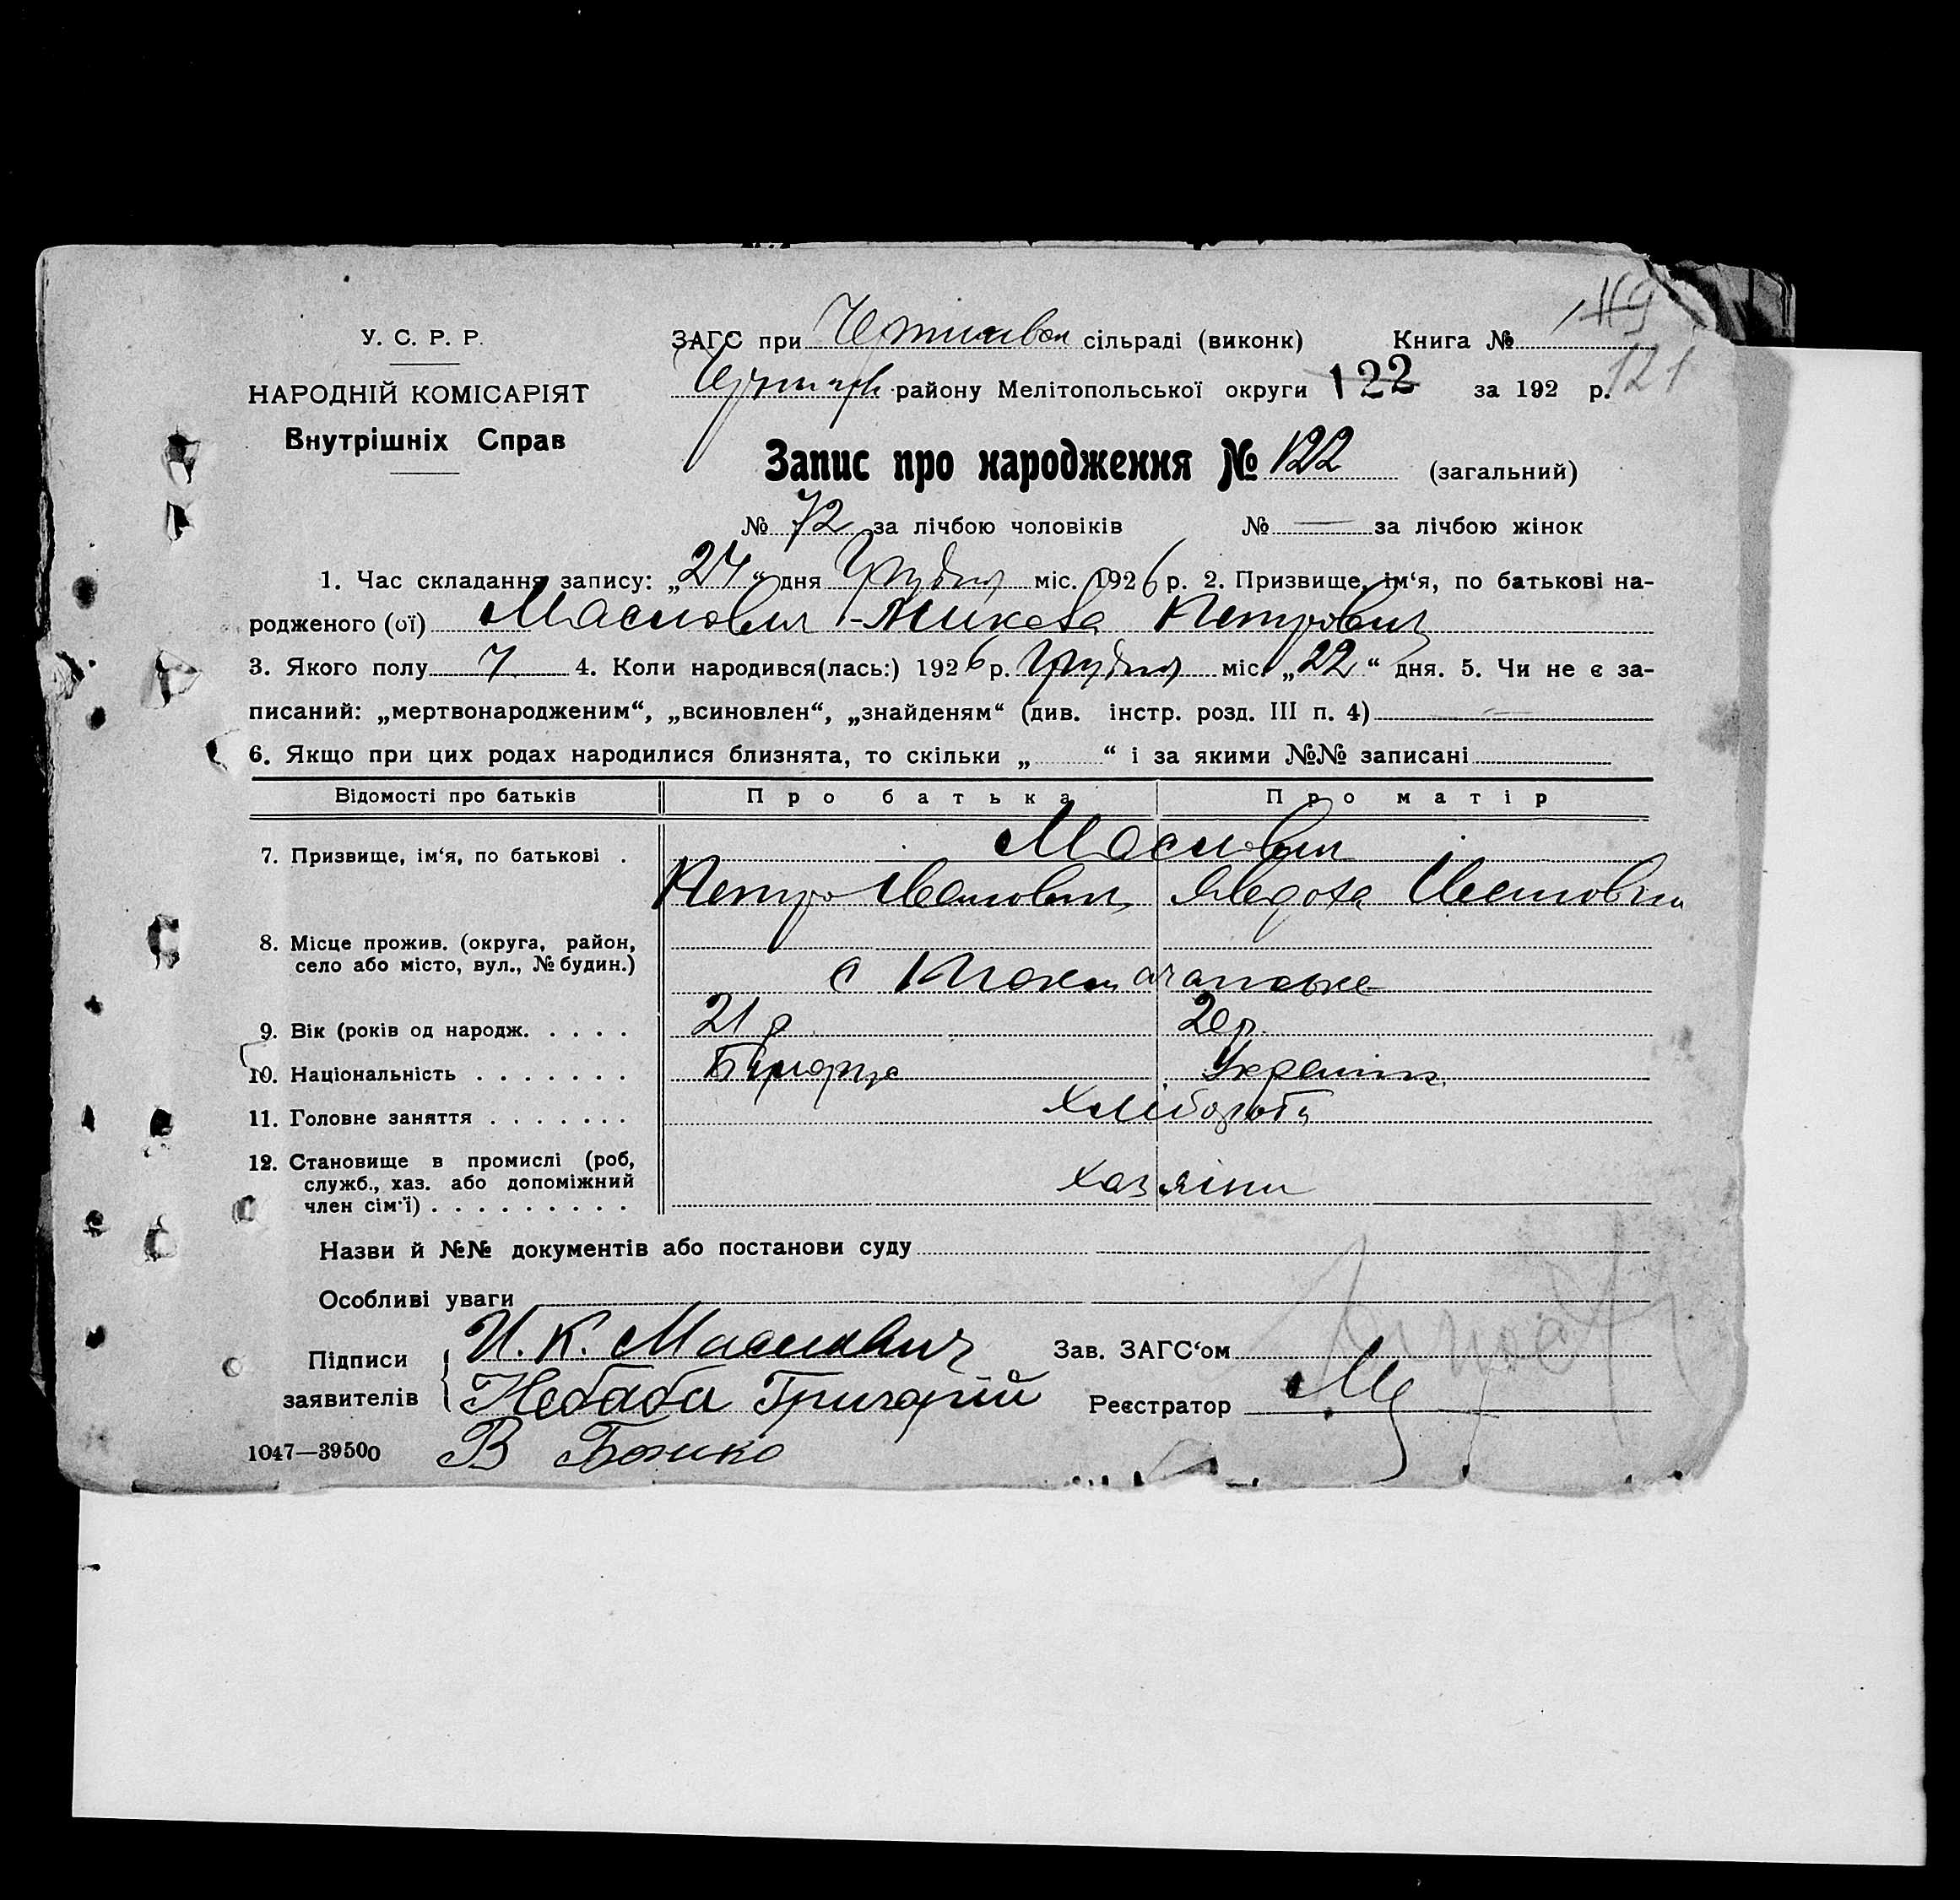 У. С. Р. Р.
НАРОДНІЙ КОМІСАРІЯТ
Внутрішніх Справ
ЗАГС при сільраді (виконк) Книга №
119
району Мелітопольської округи 122 за 192 р. 121
Запис про народження № 122 (загальний)
№ 72 за лічбою чоловіків № — за лічбою жінок
1. Час складання запису: „24“ дня Грудня міс. 1926 р. 2. Призвище, ім‘я, по батькові на-
родженого (ої) Маслович Микола Петрович
3. Якого полу 4. Коли народився(лась:) 1926 р. Грудня міс. „22“ дня. 5. Чи не є за-
писаний: „мертвонародженим“, „всиновлен“, „знайденям“ (див. інстр. розд. III п. 4) —
6. Якщо при цих родах народилися близнята, то скільки „ “ і за якими №№ записані
Відомості про батьків Про батька Про матір
Маслович
7. Призвище, ім‘я, по батькові .
Петро Іванович Явдоха
8. Місце прожив. (округа, район,
село або місто, вул., № будин.)
с
9. Вік (років од народж. . . . . 21 р 20 р.
10. Національність . . . . . . .
11. Головне заняття . . . . . . . хлібороби
12. Становище в промислі (роб,
служб., хаз. або допоміжний
член сім‘ї) . . . . . . . . . хазяіни
Назви й №№ документів або постанови суду
Особливі уваги
Підписи
заявителів
И. К. Маслович
Небаба Григорій
В Божко
Зав. ЗАГС‘ом
Реєстратор
1047—39500